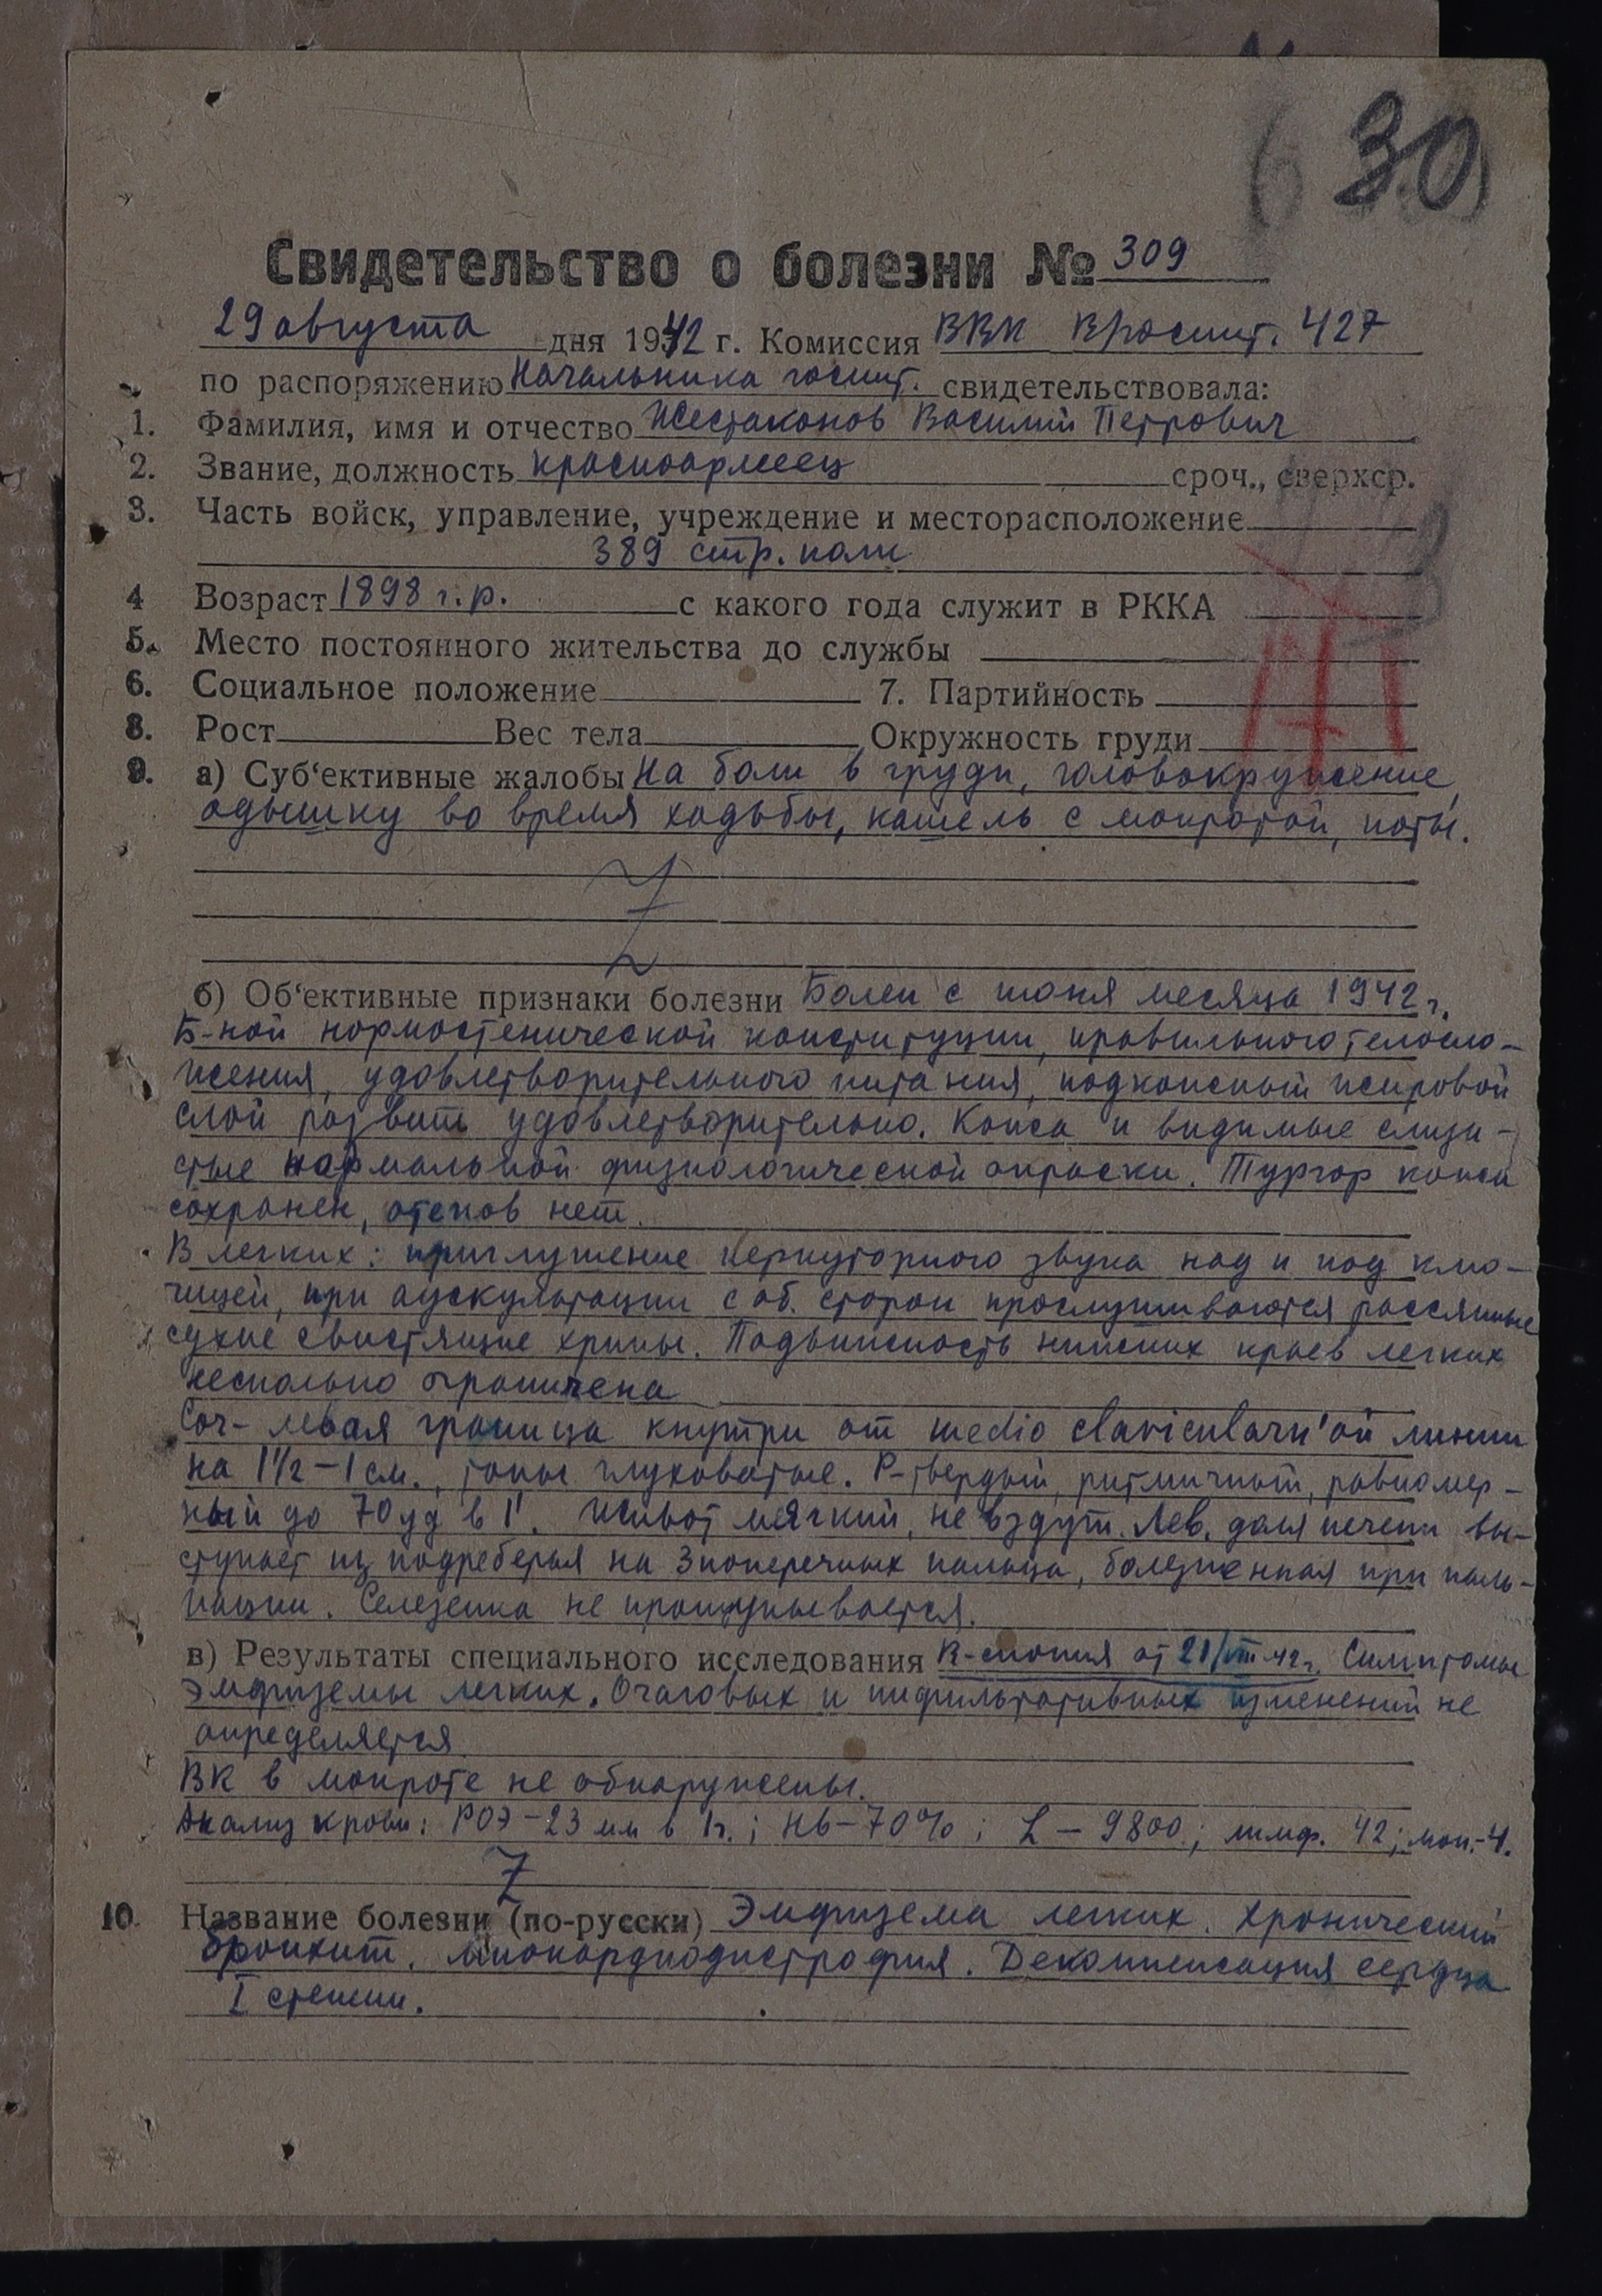 30
Свидетельство о болезни № 309
29 августа дня 1942 г. Комиссия ВВК 427
по распоряжению Начальника госпит. свидетельствовала:
1. Фамилия, имя и отчество Жестаконов Василий Петрович
2. Звание, должность красноармеец сроч., сверхср.
3. Часть войск, управление, учреждение и месторасположение
389 стр. полк
4 Возраст 1898 г.р. с какого года служит в РККА
5. Место постоянного жительства до службы
6. Социальное положение 7. Партийность
8. Рост Вес тела Окружность груди
9. а) Суб‘ективные жалобы на боли в груди, головокружение,
одышку во время ходьбы, кашель с мокротой, поты.
б) Об‘ективные признаки болезни Болен с июня месяца 1942 г.
Б-ной нормостенической конституции, правильного телосло-
жения, удовлетворительного питания, подкожный жировой
слой развит удовлетворительно. Кожа и видимые слизи-
стые нормальной физиологической окраски. Тургор кожи
сохранен, отеков нет.
В легких: приглушение перкуторного звука над и под клю-
чицей, при аускультации с об. сторон прослушиваются рассяяные
сухие свистящие хрипы. Подвижность нижних краев легких
несколько ограничена
Соч- левая граница кнутри от medio clavicularn'ой линии
на 1½-1 см., тоны глуховатые. Р-твердый, ритмичный, равномер-
ный до 70 уд в 1'. Живот мягкий, не вздут. Лев. доля печени вы-
ступает из подреберья на 3 поперечных пальца, болезненная при паль-
пации. Селезенка не прощупывается.
в) Результаты специального исследования R-скопия от 21/VIII 42 г. Симптомы
эмфиземы легких. Очаговых и инфильтративных изменений не
определяется
ВК в мокроте не обнаружены.
Анализ крови: РОЭ-23 мм в 1ч.; Нb-70%; L-9800; лимф. 42; мон.-4.
10. Название болезни (по-русски) Эмфизема легких. Хронический
бронхит. Миокардиодистрофия. Декомпенсация сердца
I степени.